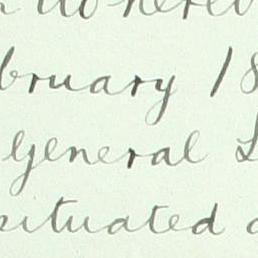 bruary 18
General L
situated